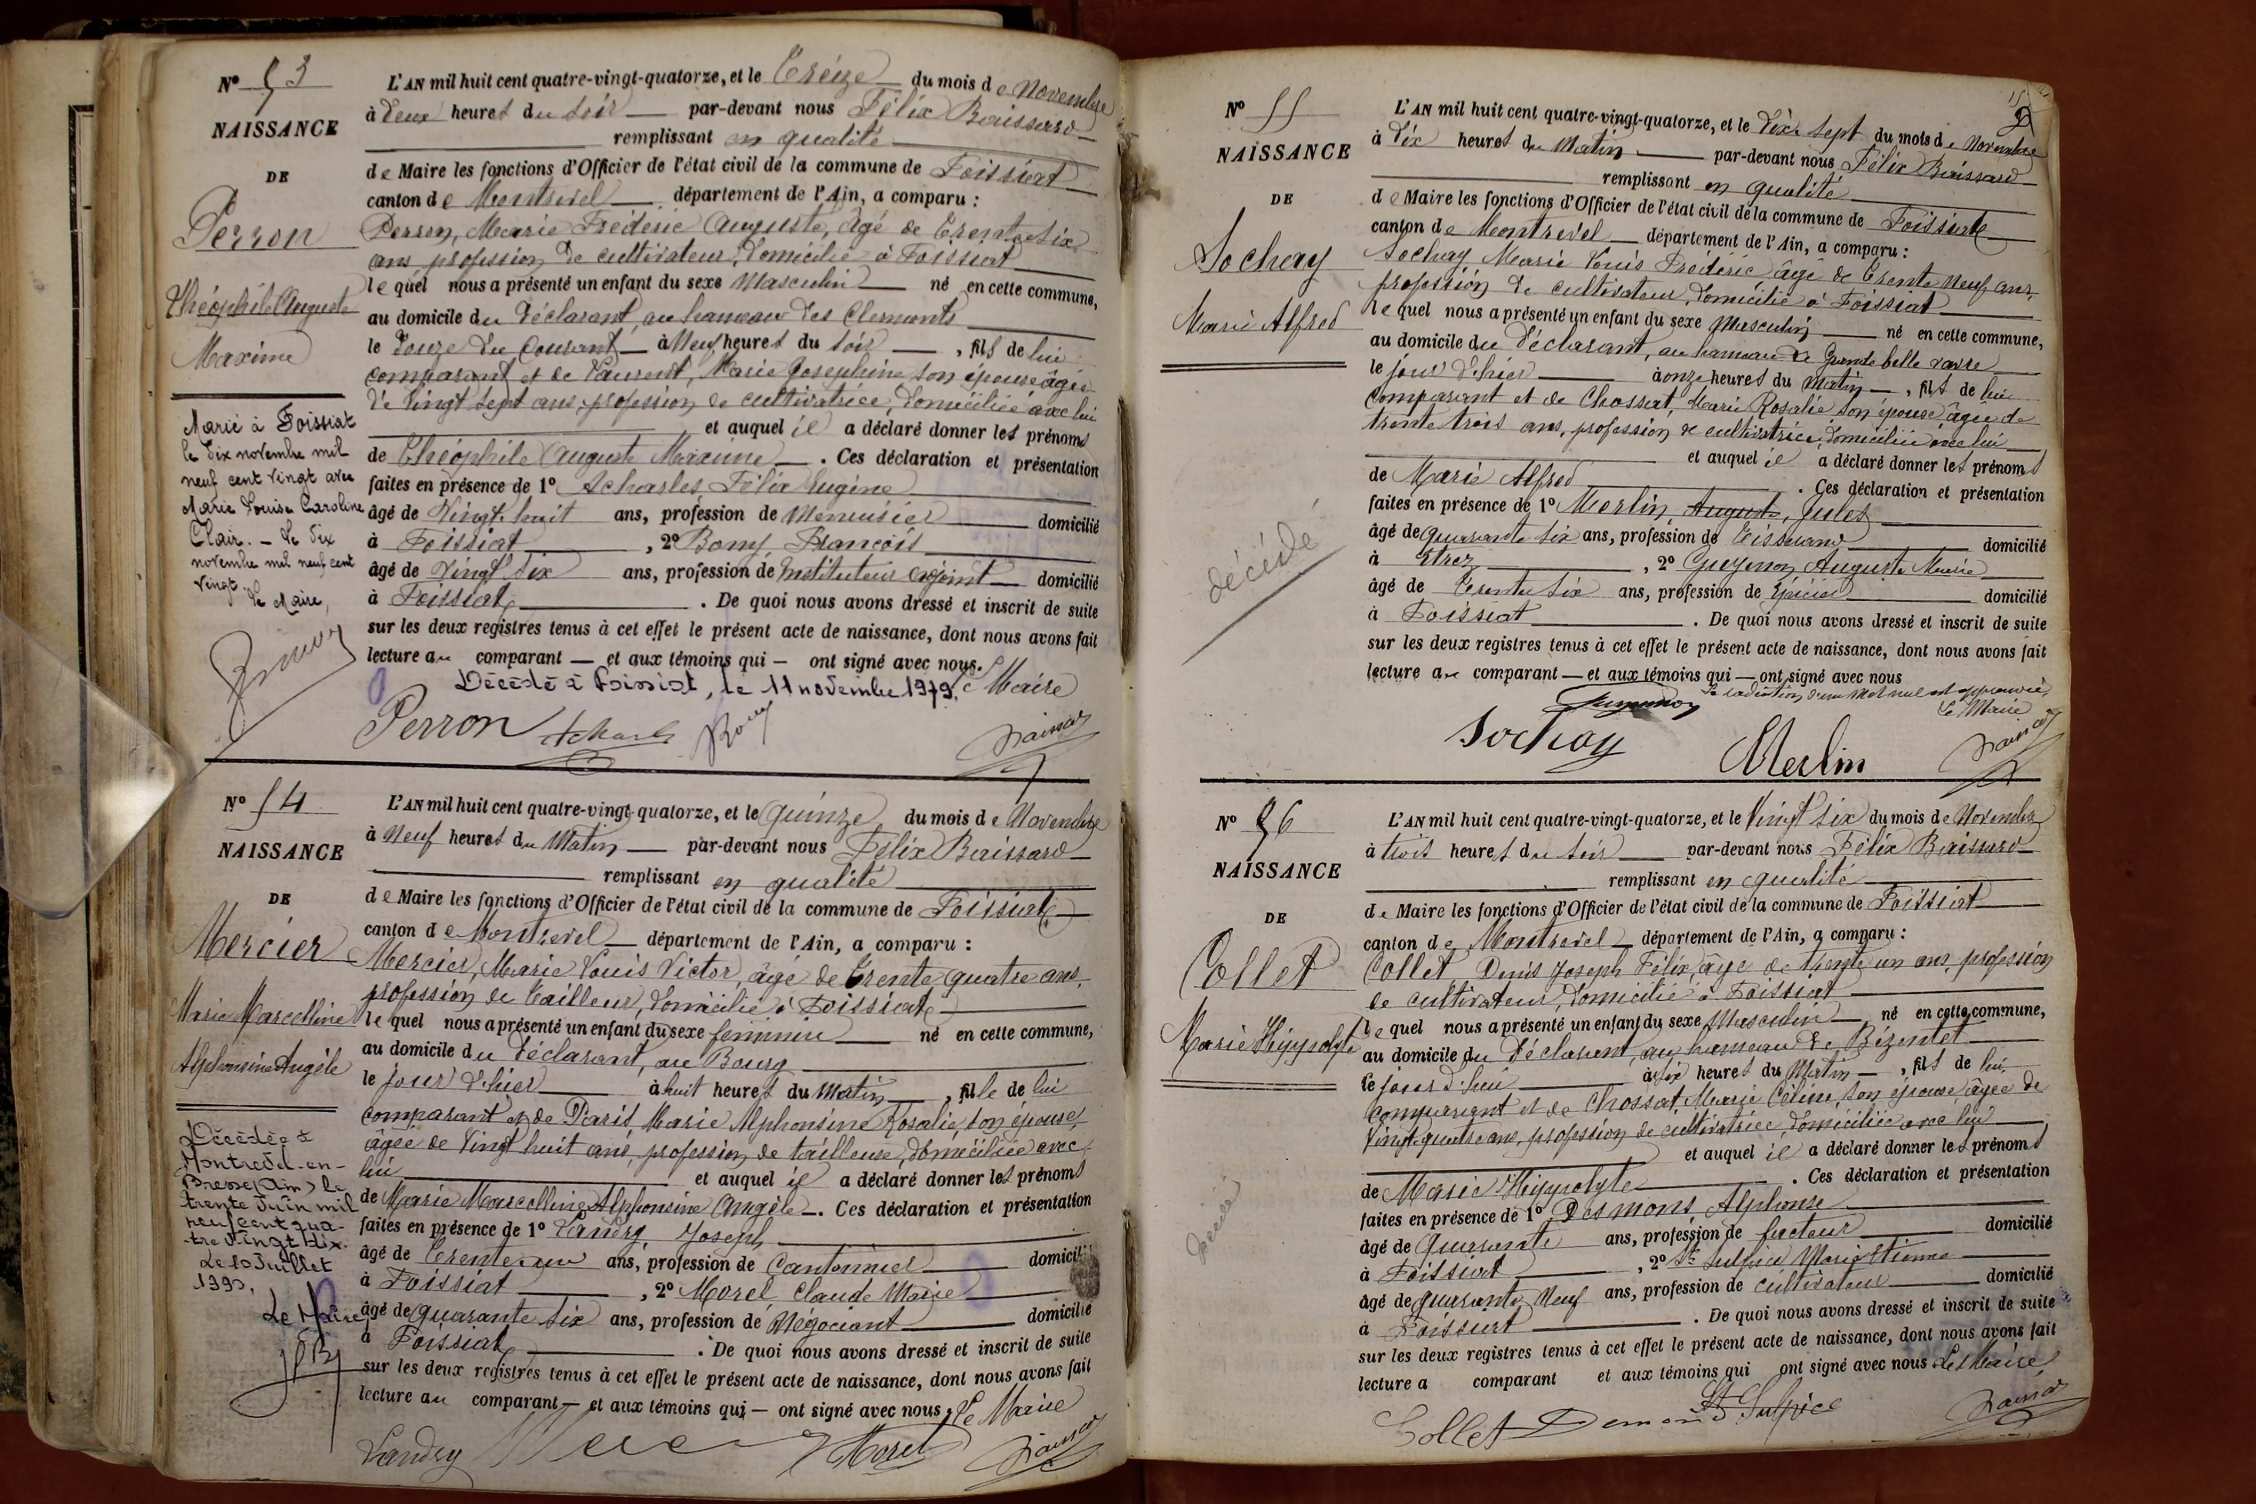 Nº 53
NAISSANCE
DE
Perron
Théophile Auguste
Maxime
Marié à Foissiat
le dix novembre mil
neuf cent vingt avec
Marie Louise Caroline
Clair. – Le dix
novembre mil neuf cent
vingt
Le Maire,
L'AN mil huit cent quatre-vingt-quatorze, et le Treize du mois de Novembre
à Deux heures du soir par-devant nous Félix Baissard
remplissant en qualité
de Maire les fonctions d'Officier de l'état civil de la commune de Foissiat
canton de Montrevel département de l'Ain, a comparu :
Perron, Marie Frédéric Auguste, âgé de Trente six
ans profession de cultivateur, domicilié à Foissiat
lequel nous a présenté un enfant du sexe Masculin né en cette commune,
au domicile du Déclarant, au hameau des Clements
le Douze du Courant à Neuf heures du soir, fils de lui
comparant et de Laurent, Marie Josephine son épouse âgée
de Vingt sept ans, profession de cultivatrice, domiciliée avec lui
et auquel il a déclaré donner les prénoms
de Théophile Auguste Maxime. Ces déclaration et présentation
faites en présence de 1º Acharles Félix Eugène
âgé de Vingt huit ans, profession de Menuisier domicilié
à Foissiat, 2º Bony François
âgé de Vingt six ans, profession de Instituteur adjoint domicilié
à Foissiat. De quoi nous avons dressé et inscrit de suite
sur les deux registres tenus à cet effet le présent acte de naissance, dont nous avons fait
lecture au comparant – et aux témoins qui – ont signé avec nous.
Décédé à Foissiat, le 11 novembre 1979. Le Maire
Perron Acharles Bony Baissard
Nº 54
NAISSANCE
DE
Mercier
Marie Marcelline
Alphonsine Angèle
Décédée à
Montrevel-en-
Bresse (Ain) le
trente Juin mil
neuf cent qua-
tre vingt dix.
Le 10 Juillet
1990.
Le Maire,
L'AN mil huit cent quatre-vingt-quatorze, et le Quinze du mois de Novembre
à Neuf heures du Matin par-devant nous Félix Baissard
remplissant en qualité
de Maire les fonctions d'Officier de l'état civil de la commune de Foissiat
canton de Montrevel département de l'Ain, a comparu :
Mercier, Marie Louis Victor, âgé de Trente quatre ans,
profession de Tailleur, domicilié à Foissiat
lequel nous a présenté un enfant du sexe féminin né en cette commune,
au domicile du Déclarant, au Bourg
le jour d'hier à huit heures du Matin, fille de lui
comparant et de Paris, Marie Alphonsine Rosalie, son épouse,
âgée de Vingt huit ans, profession de tailleuse, domiciliée avec
lui et auquel il a déclaré donner les prénoms
de Marie Marcelline Alphonsine Angèle. Ces déclaration et présentation
faites en présence de 1º Landry, Joseph
âgé de Trente un ans, profession de Cantonnier domicilié
à Foissiat, 2º Morel Claude Marie
âgé de quarante six ans, profession de Négociant domicilié
à Foissiat. De quoi nous avons dressé et inscrit de suite
sur les deux registres tenus à cet effet le présent acte de naissance, dont nous avons fait
lecture au comparant – et aux témoins qui – ont signé avec nous. Le Maire
Landry Mercier Morel Baissard
Nº 55
NAISSANCE
DE
Sochay
Marie Alfred
décédé
L'AN mil huit cent quatre-vingt-quatorze, et le Dix sept du mois de Novembre
à Dix heures du Matin par-devant nous Félix Baissard
remplissant en qualité
de Maire les fonctions d'Officier de l'état civil de la commune de Foissiat
canton de Montrevel département de l'Ain, a comparu :
Sochay Marie Louis Frédéric âgé de Trente neuf ans,
profession de cultivateur, domicilié à Foissiat
lequel nous a présenté un enfant du sexe Masculin né en cette commune,
au domicile du Déclarant, au hameau de Grande belle vavre
le jour d'hier à onze heures du Matin, fils de lui
comparant et de Chossat, Marie Rosalie son épouse âgée de
trente trois ans, profession de cultivatrice, domiciliée avec lui
et auquel il a déclaré donner les prénoms
de Marie Alfred. Ces déclaration et présentation
faites en présence de 1º Merlin, Auguste, Jules
âgé de quarante six ans, profession de Tisserand domicilié
à Etrez, 2º Guyenon Auguste Marie
âgé de Trente six ans, profession de Epicier domicilié
à Foissiat. De quoi nous avons dressé et inscrit de suite
sur les deux registres tenus à cet effet le présent acte de naissance, dont nous avons fait
lecture au comparant – et aux témoins qui – ont signé avec nous
La radiation d'un mot nul est approuvée,
Le Maire
Guyenon
Sochay Merlin Baissard
Nº 56
NAISSANCE
DE
Collet
Marie Hippolyte
décédé
L'AN mil huit cent quatre-vingt-quatorze, et le Vingt six du mois de Novembre
à trois heures du soir par-devant nous Félix Baissard
remplissant en qualité
de Maire les fonctions d'Officier de l'état civil de la commune de Foissiat
canton de Montrevel département de l'Ain, a comparu :
Collet, Denis Joseph Félix, âgé de trente un ans, profession
de cultivateur, domicilié à Foissiat
lequel nous a présenté un enfant du sexe Masculin né en cette commune,
au domicile du Déclarant, au hameau de Bézentet
le jour d'hui à six heures du Matin, fils de lui,
comparant et de Chossat, Marie Céline, son épouse âgée de
Vingt quatre ans, profession de cultivatrice, domiciliée avec lui
et auquel il a déclaré donner les prénoms
de Marie Hippolyte. Ces déclaration et présentation
faites en présence de 1º Desmons Alphonse
âgé de Quarante ans, profession de facteur domicilié
à Foissiat, 2º St Sulpice Marie Etienne
âgé de quarante neuf ans, profession de cultivateur domicilié
à Foissiat. De quoi nous avons dressé et inscrit de suite
sur les deux registres tenus à cet effet le présent acte de naissance, dont nous avons fait
lecture a comparant et aux témoins qui ont signé avec nous Le Maire
Collet Demons St Sulpice Baissard